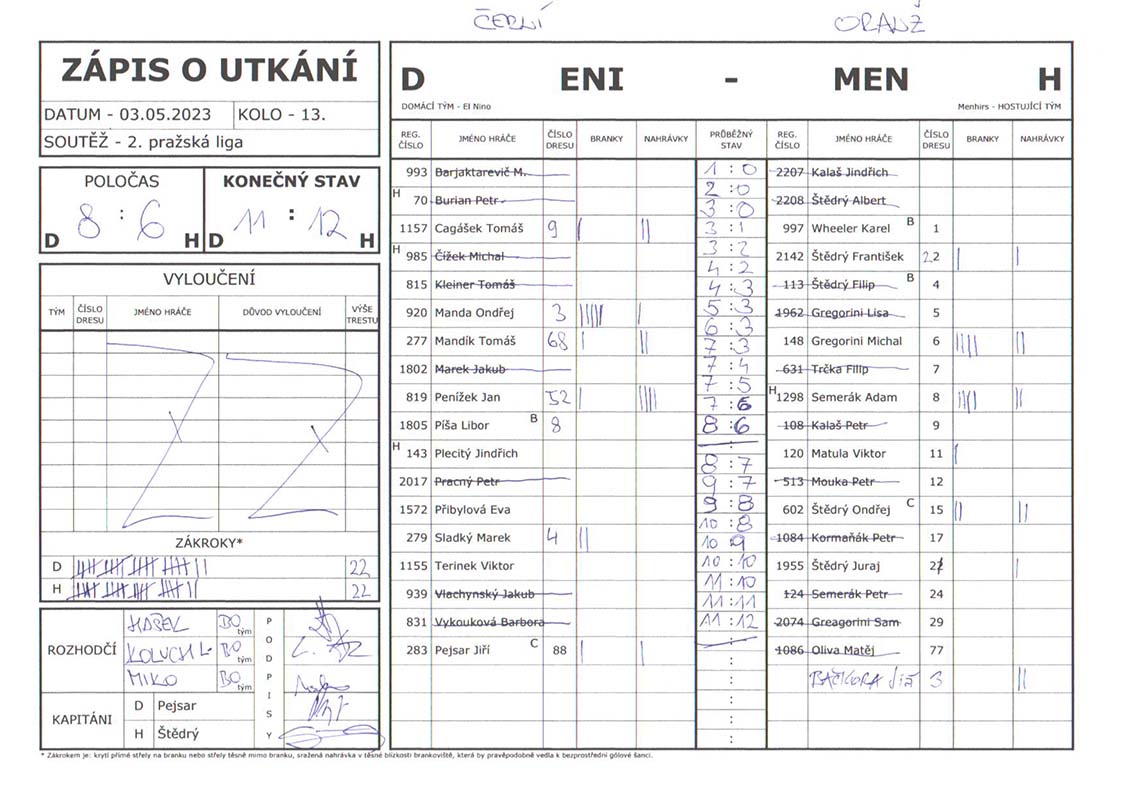 ČERNÍ
ORANŽ
ZÁPIS O UTKÁNÍ
DATUM - 03.05.2023 KOLO - 13.
SOUTĚŽ - 2. pražská liga
POLOČAS KONEČNÝ STAV
8 : 6 11 : 12
D H D H
VYLOUČENÍ
TÝM ČÍSLO DRESU JMÉNO HRÁČE DŮVOD VYLOUČENÍ VÝŠE TRESTU
ZÁKROKY*
D 22
H 22
ROZHODČÍ
HAŠEK BO tým
KOLUCH L. BO tým
MIKO BO tým
PODPISY
KAPITÁNI
D Pejsar
H Štědrý
D ENI - MEN H
DOMÁCÍ TÝM - El Nino Menhirs - HOSTUJÍCÍ TÝM
REG. ČÍSLO JMÉNO HRÁČE ČÍSLO DRESU BRANKY NAHRÁVKY PRŮBĚŽNÝ STAV REG. ČÍSLO JMÉNO HRÁČE ČÍSLO DRESU BRANKY NAHRÁVKY
993 Barjaktarevič M.
H 70 Burian Petr
1157 Cagášek Tomáš 9 | ||
H 985 Čížek Michal
815 Kleiner Tomáš
920 Manda Ondřej 3
277 Mandík Tomáš 68 | ||
1802 Marek Jakub
819 Penížek Jan 52 | ||||
1805 Píša Libor B 8
H 143 Plecitý Jindřich
2017 Pracný Petr
1572 Přibylová Eva
279 Sladký Marek 4 ||
1155 Terinek Viktor
939 Vlachynský Jakub
831 Vykouková Barbora
283 Pejsar Jiří C 88 | |
1 : 0
2 : 0
3 : 0
3 : 1
3 : 2
4 : 2
4 : 3
5 : 3
6 : 3
7 : 3
7 : 4
7 : 5
7 : 6
8 : 6
:
8 : 7
9 : 7
9 : 8
10 : 8
10 : 9
10 : 10
11 : 10
11 : 11
11 : 12
:
:
:
:
:
:
2207 Kalaš Jindřich
2208 Štědrý Albert
997 Wheeler Karel B 1
2142 Štědrý František 22 | |
113 Štědrý Filip B 4
1962 Gregorini Lisa 5
148 Gregorini Michal 6 |||| ||
631 Trčka Filip 7
H 1298 Semerák Adam 8 ||
108 Kalaš Petr 9
120 Matula Viktor 11 |
513 Mouka Petr 12
602 Štědrý Ondřej C 15 || ||
1084 Kormaňák Petr 17
1955 Štědrý Juraj |
124 Semerák Petr 24
2074 Greagorini Sam 29
1086 Oliva Matěj 77
BAČKORA Jiří 3 ||
* Zákrokem je: krytí přímé střely na branku nebo střely těsně mimo branku, sražená nahrávka v těsné blízkosti brankoviště, která by pravěpodobně vedla k bezprostřední gólové šanci.